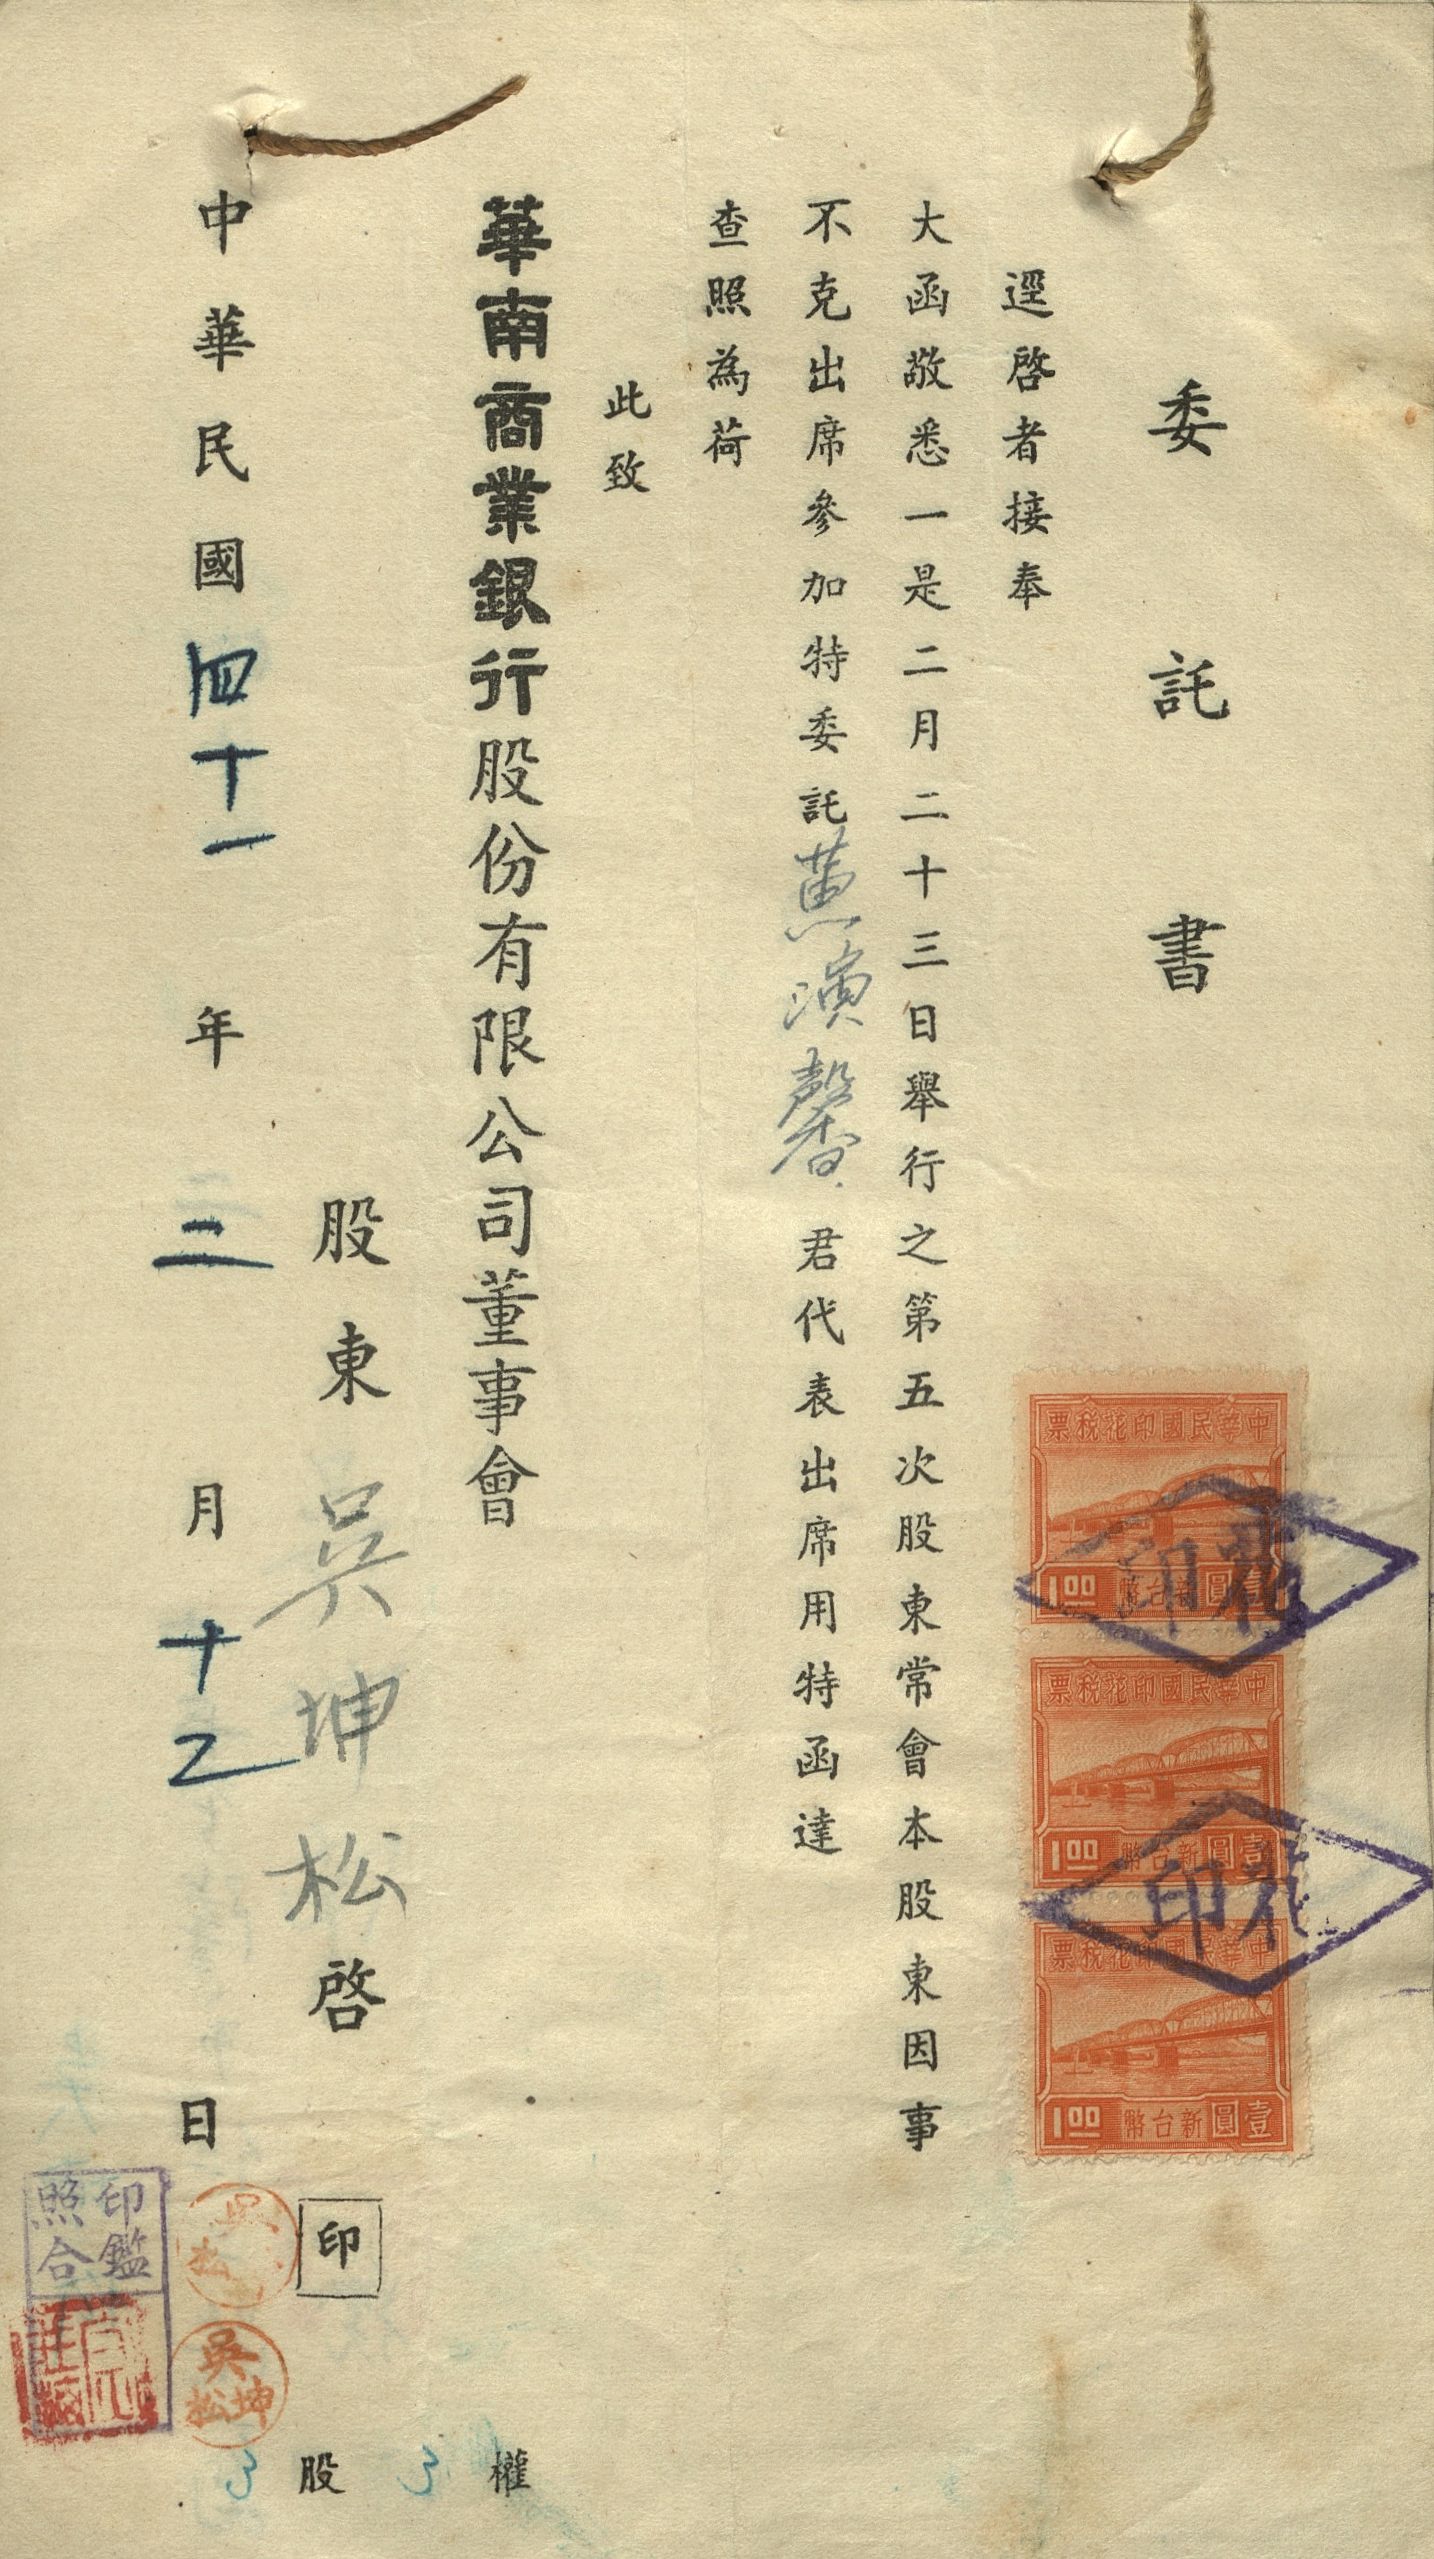 委託書
逕啓者接奉
大函敬悉一是二月二十三日舉行之第五次股東常會本股東因事
不克出席參加特委託黃演馨君代表出席用特函達
查照為荷
此致
華南商業銀行股份有限公司董事會
股東吳坤松啓
印
中華民國四十一年二月十乙日
3股3權
中華民國印花稅票
1.00 新台幣壹圓
中華民國印花稅票
1.00 新台幣壹圓
中華民國印花稅票
1.00 新台幣壹圓
花印
花印
吳坤松
吳坤松
印鑑照合